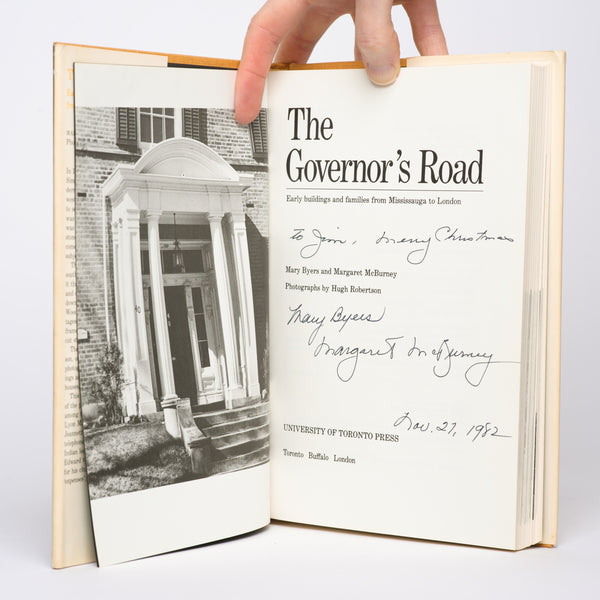 The
Governor's Road
Early buildings and families from Mississauga to London
to Jim, Merry Christmas
Mary Byers and Margaret McBurney
Photographs by Hugh Robertson
Mary Byers
Margaret McBurney
Nov. 27, 1982
UNIVERSITY OF TORONTO PRESS
Toronto Buffalo London